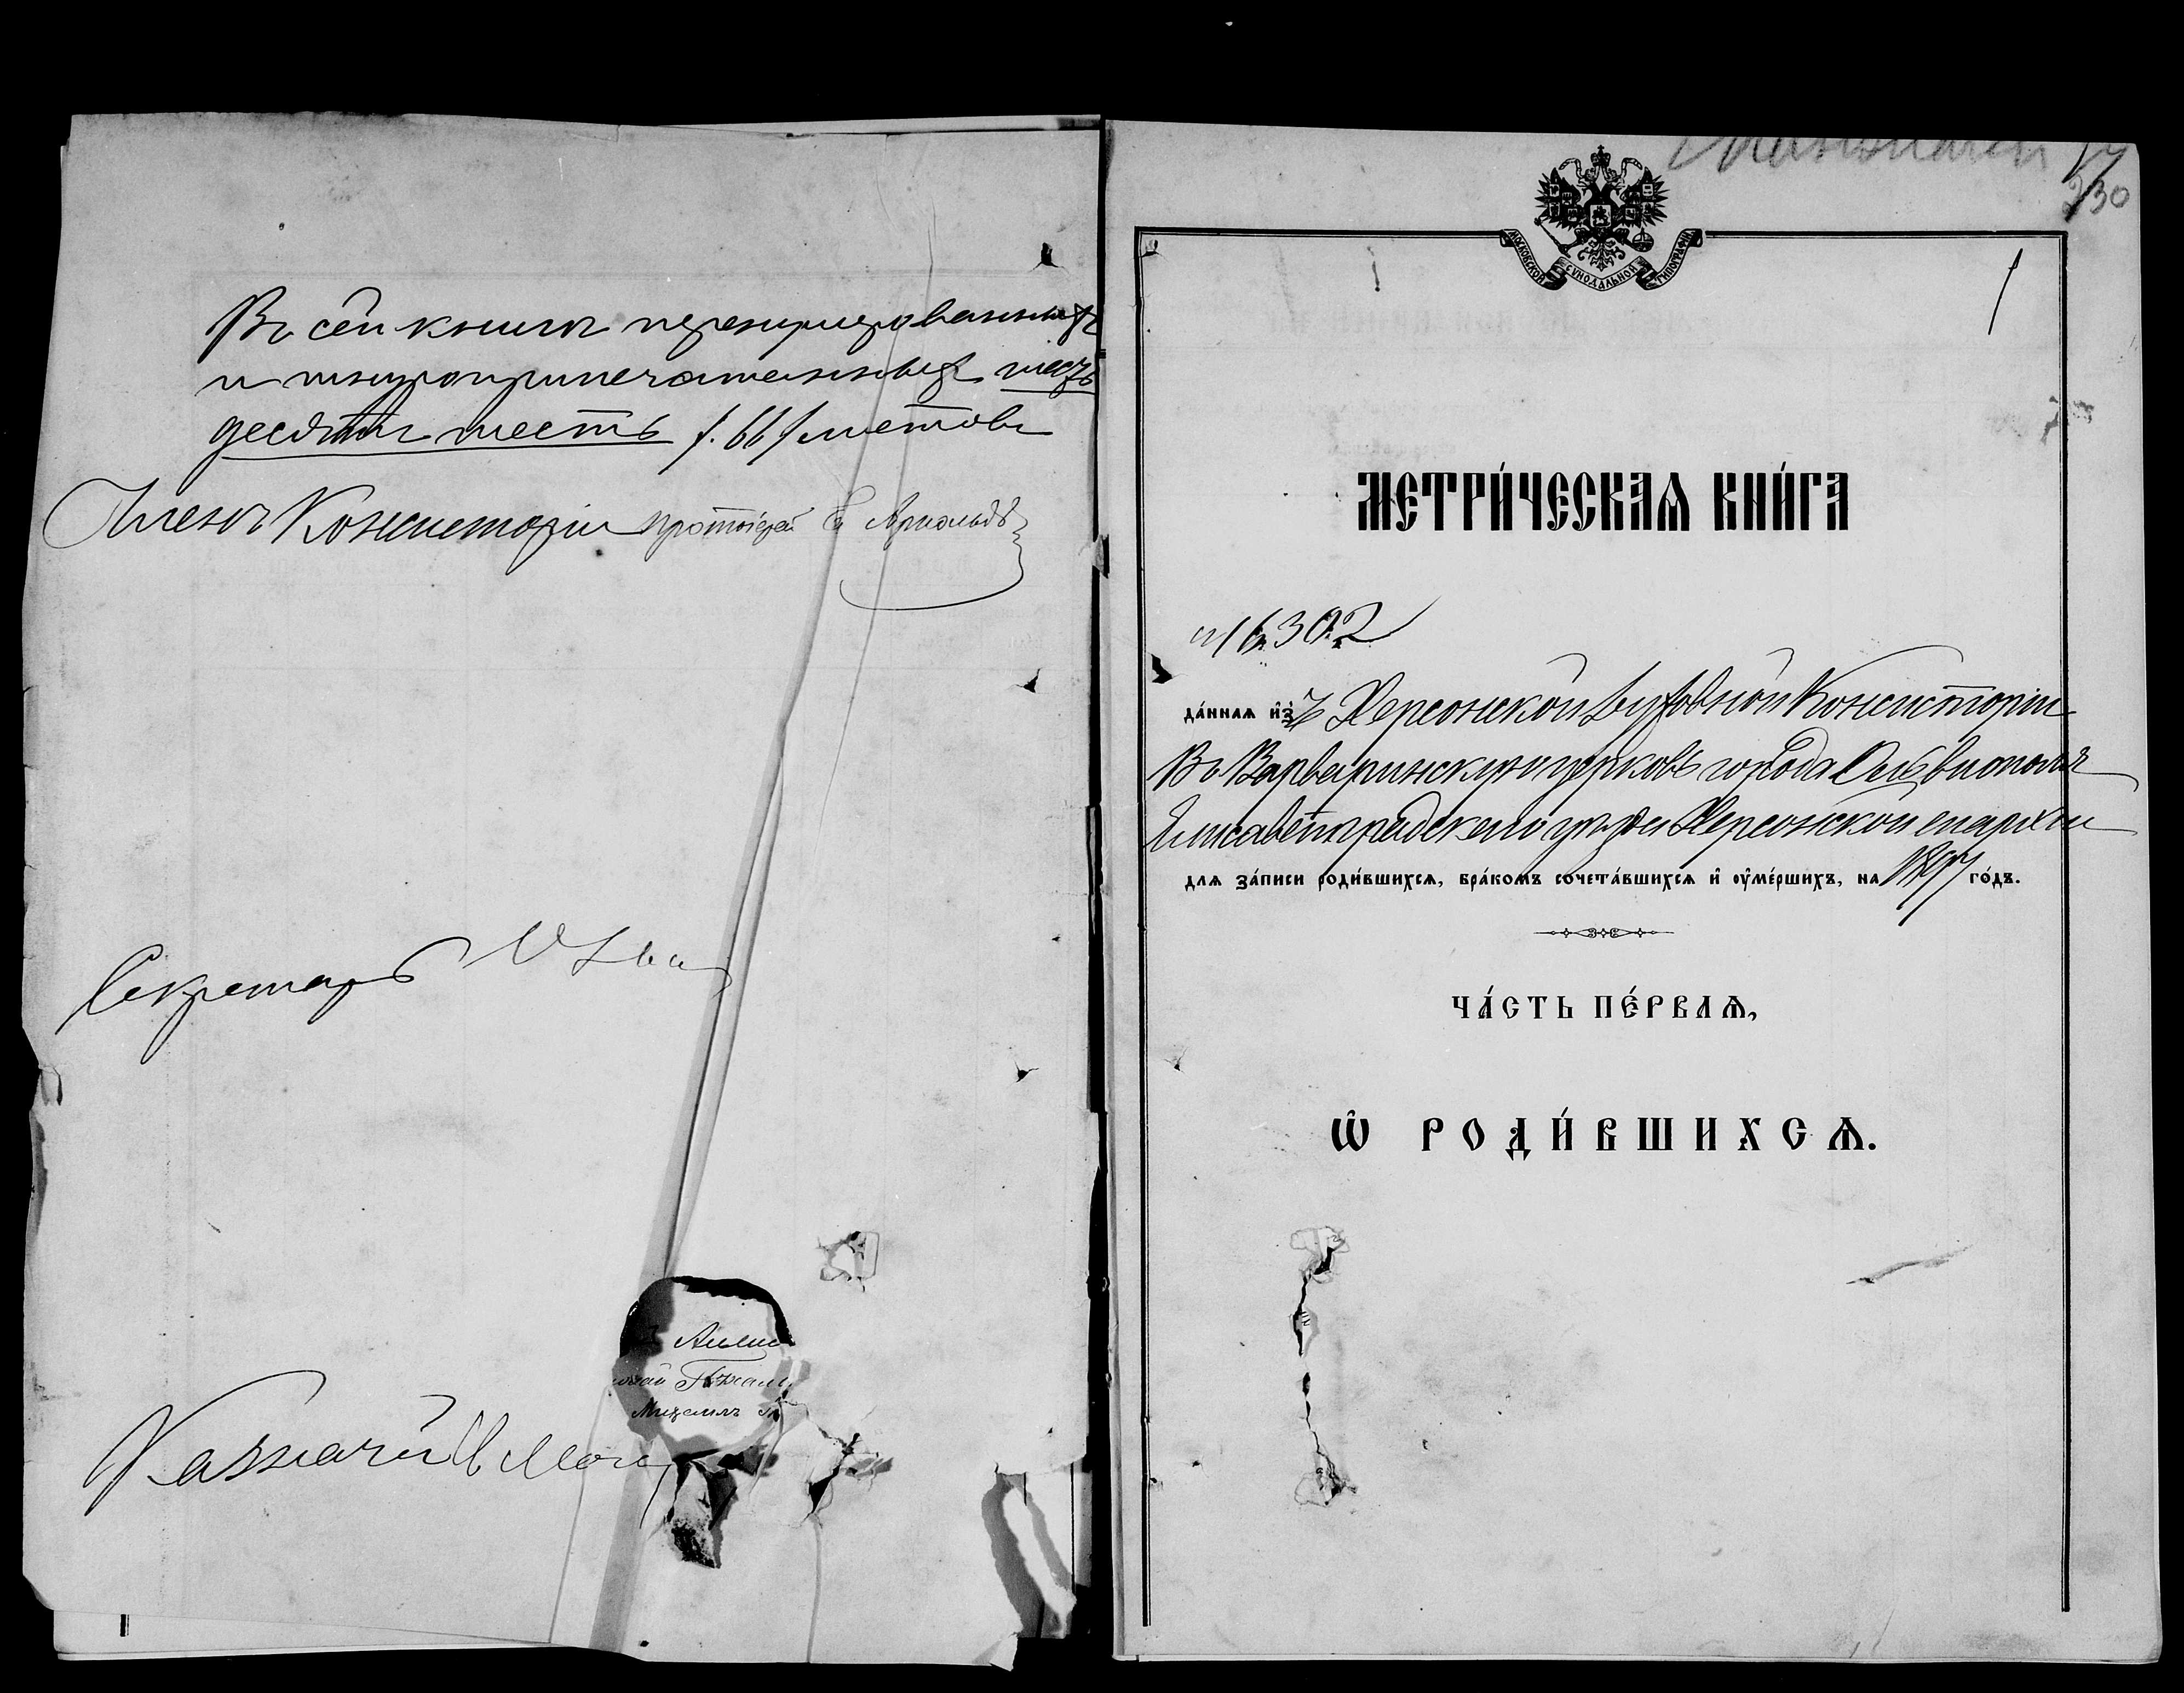 Въ сей книгѣ перенумерованныхъ
и шнуроприпечатанныхъ шесть
десятъ шесть /.66/ листовъ
Членъ Консисторіи протоіерей Арнольдъ
Секретарь
Казначей
Михаилъ
230
МОСКОВСКОЙ СѴНОДАЛЬНОЙ ТИПОГРАФІИ
1
МЕТРИ́ЧЕСКАѦ КНИ́ГА
№ 16302
да́ннаѧ и҆зъ Херсонской Духовной Консисторіи
Въ Варваринскую церковь города Ольвіополя
Елисаветградскаго уѣзда Херсонской епархіи
для за́писи роди́вшихсѧ, бра́комъ сочета́вшихсѧ и҆ ᲂу҆ме́ршихъ, на 1897 го́дъ.
ЧА́СТЬ ПЕ́РВАѦ,
Ѡ҆ РОДИ́ВШИХСѦ.